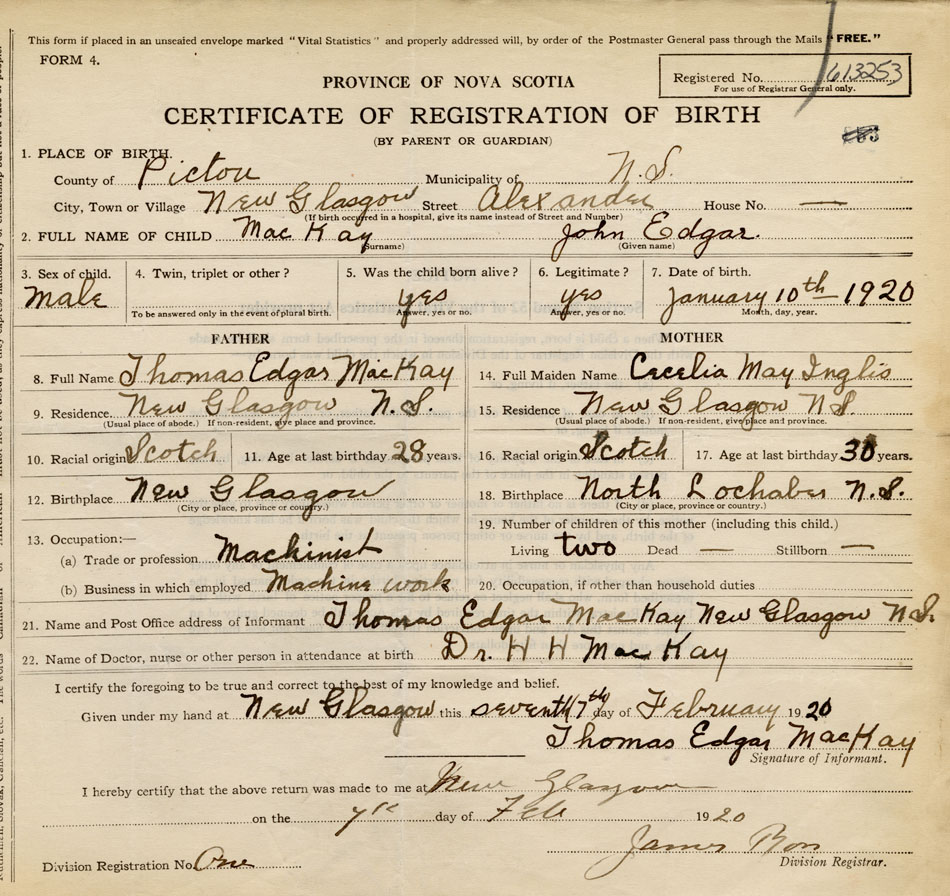 This form if placed in an unsealed envelope marked "Vital Statistics" and properly addressed will, by order of the Postmaster General pass through the Mails "FREE."
FORM 4.
Registered No. 613253
For use of Registrar General only.
PROVINCE OF NOVA SCOTIA
CERTIFICATE OF REGISTRATION OF BIRTH
(BY PARENT OR GUARDIAN)
1. PLACE OF BIRTH.
County of Pictou Municipality of N.S.
City, Town or Village New Glasgow Street Alexander House No. —
(If birth occurred in a hospital, give its name instead of Street and Number)
2. FULL NAME OF CHILD Mac Kay John Edgar.
(Surname) (Given name)
3. Sex of child. 4. Twin, triplet or other? 5. Was the child born alive? 6. Legitimate? 7. Date of birth.
Male yes yes January 10th 1920
To be answered only in the event of plural birth. Answer, yes or no. Answer, yes or no. Month, day, year.
FATHER MOTHER
8. Full Name Thomas Edgar MacKay 14. Full Maiden Name Cecelia May Inglis
9. Residence. New Glasgow N.S. 15. Residence New Glasgow N.S.
(Usual place of abode.) If non-resident, give place and province. (Usual place of abode.) If non-resident, give place and province.
10. Racial origin Scotch 11. Age at last birthday 28 years. 16. Racial origin Scotch 17. Age at last birthday 30 years.
12. Birthplace New Glasgow 18. Birthplace North Lochaber N.S.
(City or place, province or country.) (City or place, province or country.)
13. Occupation:— 19. Number of children of this mother (including this child.)
(a) Trade or profession Machinist Living two Dead — Stillborn —
(b) Business in which employed Machine work 20. Occupation, if other than household duties
21. Name and Post Office address of Informant Thomas Edgar MacKay New Glasgow N.S.
22. Name of Doctor, nurse or other person in attendance at birth Dr. H H MacKay
I certify the foregoing to be true and correct to the best of my knowledge and belief.
Given under my hand at New Glasgow this seventh 7th day of February 1920
Thomas Edgar MacKay
Signature of Informant.
I hereby certify that the above return was made to me at New Glasgow
on the 7th day of Feb 1920
James
Division Registration No. One Division Registrar.